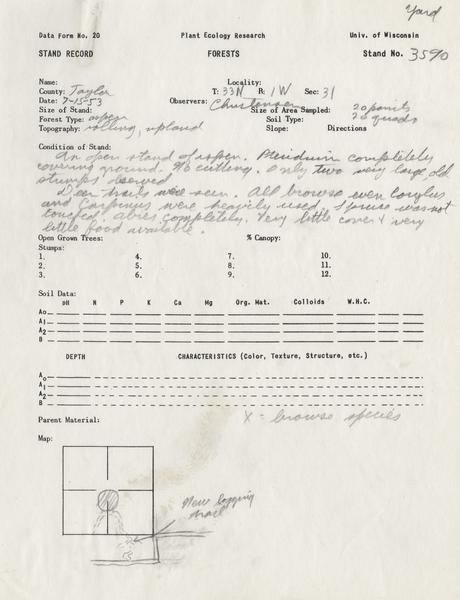 Yard
Data Form No. 20 Plant Ecology Research Univ. of Wisconsin
STAND RECORD FORESTS Stand No. 3590
Name: Locality:
County: Taylor T: 33N R: 1W Sec: 31
Date: 7-15-53 Observers: Christensen
Size of Stand: Size of Area Sampled: 20 points
Forest Type: aspen Soil Type: 20 quads
Topography: rolling, upland Slope: Directions
Condition of Stand:
An open stand of aspen. Pteridium completely
covering ground. No cutting. Only two very large, old
stumps observed.
Deer trails were seen. All browse even Corylus
and Carpinus were heavily used. Spruce was not
touched, abies completely. Very little cover & very
little food available.
Open Grown Trees: % Canopy:
Stumps:
1. 4. 7. 10.
2. 5. 8. 11.
3. 6. 9. 12.
Soil Data:
pH N P K Ca Mg Org. Mat. Colloids W.H.C.
Ao
A1
A2
B
DEPTH CHARACTERISTICS (Color, Texture, Structure, etc.)
Ao
A1
A2
B
X = browse species
Parent Material:
Map:
New logging